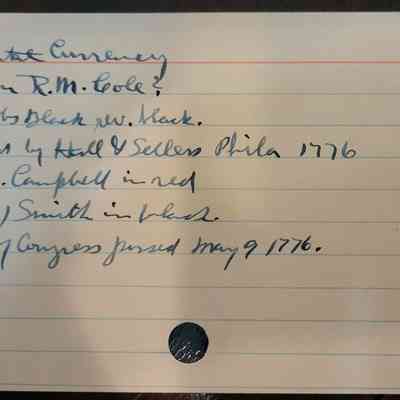 Currency
R.M. Cole?
Black rev. black.
by Hall & Sellers Phila 1776
Campbell in red
J Smith in black.
Congress passed May 9 1776.